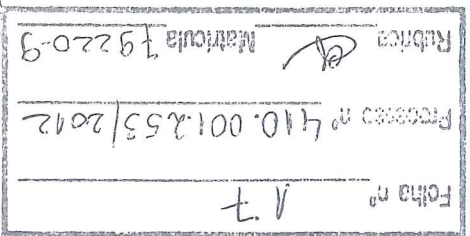 Folha nº 17
Processo nº 410.001.253/2012
Rubrica Matrícula 79220-9